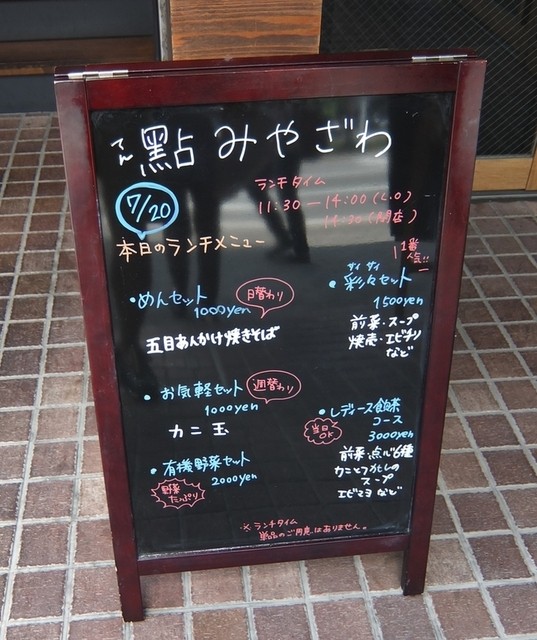 てん
點 みやざわ
7/20
ランチタイム
11:30 — 14:00 (L.O)
14:30 (閉店)
本日のランチメニュー
・めんセット
日替わり
1000yen
五目あんかけ焼きそば
・お気軽セット
週替わり
1000yen
カニ玉
・有機野菜セット
2000yen
野菜
たっぷり
1番
人気!!
サイサイ
・彩々セット
1500yen
前菜・スープ
焼売・エビチリ
など
・レディース飲茶
コース
当日
OK
3000yen
前菜・点心6種
カニとフカヒレの
スープ
エビマヨ など
※ランチタイム
単品のご用意はありません。